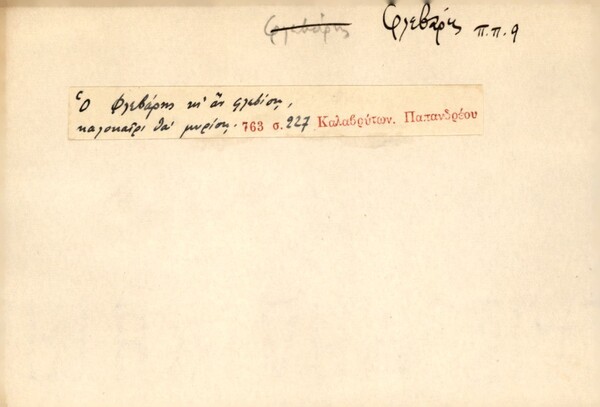 φλεβάρης Φλεβάρης π.π. 9
Ὁ Φλεβάρης κι' ἂν φλεβίσῃ,
καλοκαῖρι θὰ μυρίσῃ. 763 σ. 227 Καλαβρύτων. Παπανδρέου